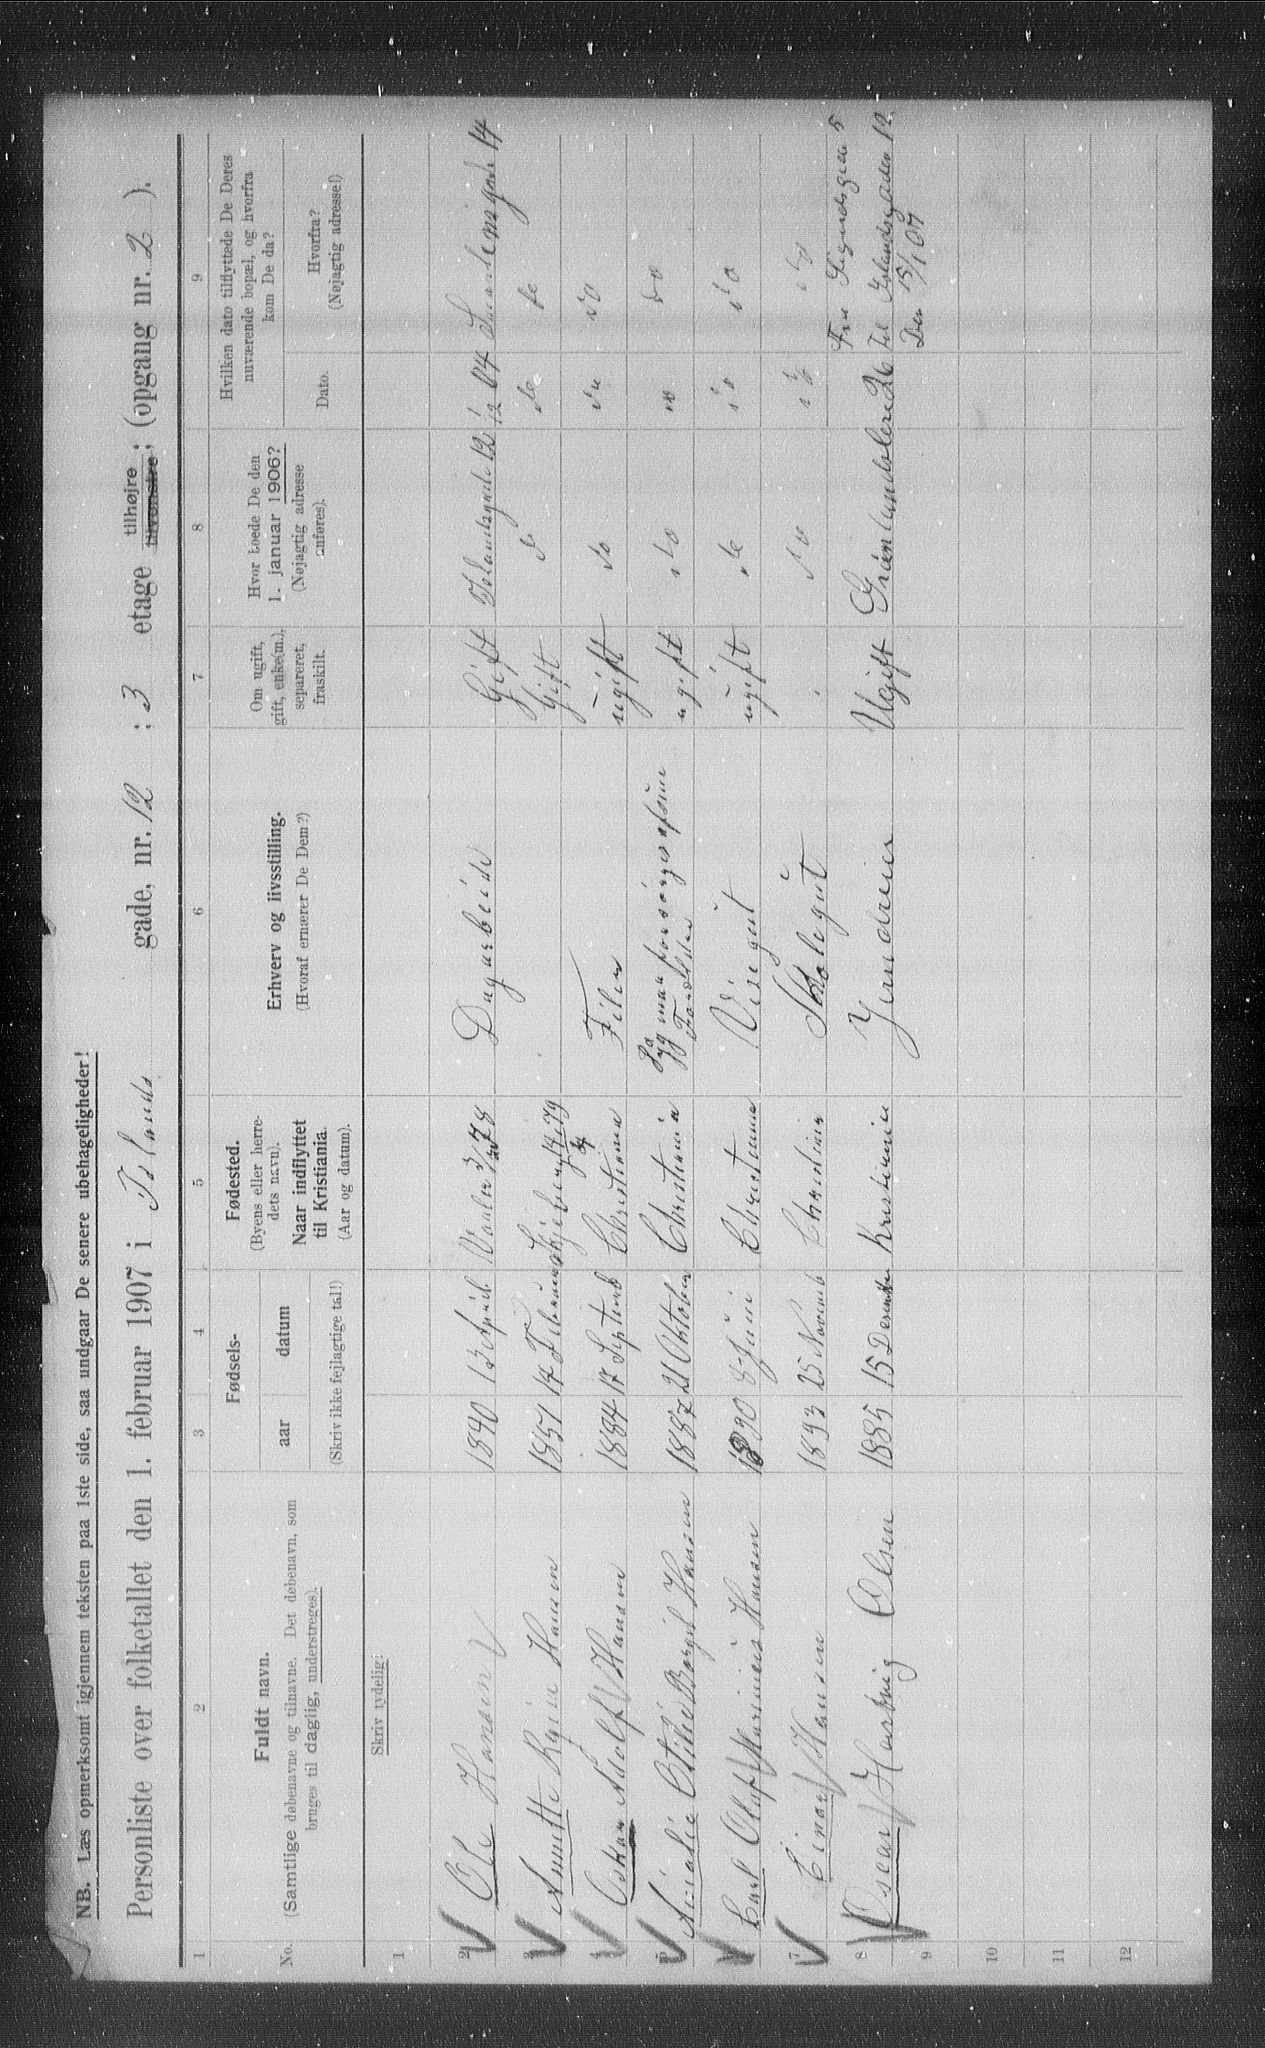 NB. Læs opmerksomt igjennem teksten paa 1ste side, saa undgaar De senere ubehageligheder!
Personliste over folketallet den 1. februar 1907 i Islands gade, nr. 12 : 3 etage tilhøjre tilvenstre; (opgang nr. 2 ).
1 2 3 4 5 6 7 8 9
No.
Fuldt navn.
(Samtlige døbenavne og tilnavne. Det døbenavn, som
bruges til daglig, understreges).
Fødsels-
aar datum
(Skriv ikke fejlagtige tal!)
Fødested.
(Byens eller herre-
dets navn).
Naar indflyttet
til Kristiania.
(Aar og datum).
Erhverv og livsstilling.
(Hvoraf ernærer De Dem?)
Om ugift,
gift, enke(m.),
separeret,
fraskilt.
Hvor boede De den
1. januar 1906?
(Nøjagtig adresse
anføres).
Hvilken dato tilflyttede De Deres
nuværende bopæl, og hvorfra
kom De da?
Dato.
Hvorfra?
(Nøjagtig adresse!)
1 Skriv tydelig!
2 Ole Hansen 1840 13 April Vaaler 78 Dagarbeide Gift Islandsgade 12 04 14
Anette Hansen 1851 17 79 Gift do do do
Oskar Adolf Hansen 1884 17 Septemb Christiania Filer ugift do do do
Amalie Otilie Hansen 1887 21 Oktober Christiania ugift do do do
Syg maa forsørges af sine
Forældre
Carl Olaf Marinius Hansen 1890 8 Juni Christiania Visegut ugift do do do
7 Einar Hansen 1893 25 Novemb Christiania Skolegut do do do
8 Oscar Hartvig Olsen 1885 15 Desember Kristiania Jerndreier Ugift 26
Fra 5
til Islandsgaden 12
Den 15/1 07
9
10
11
12